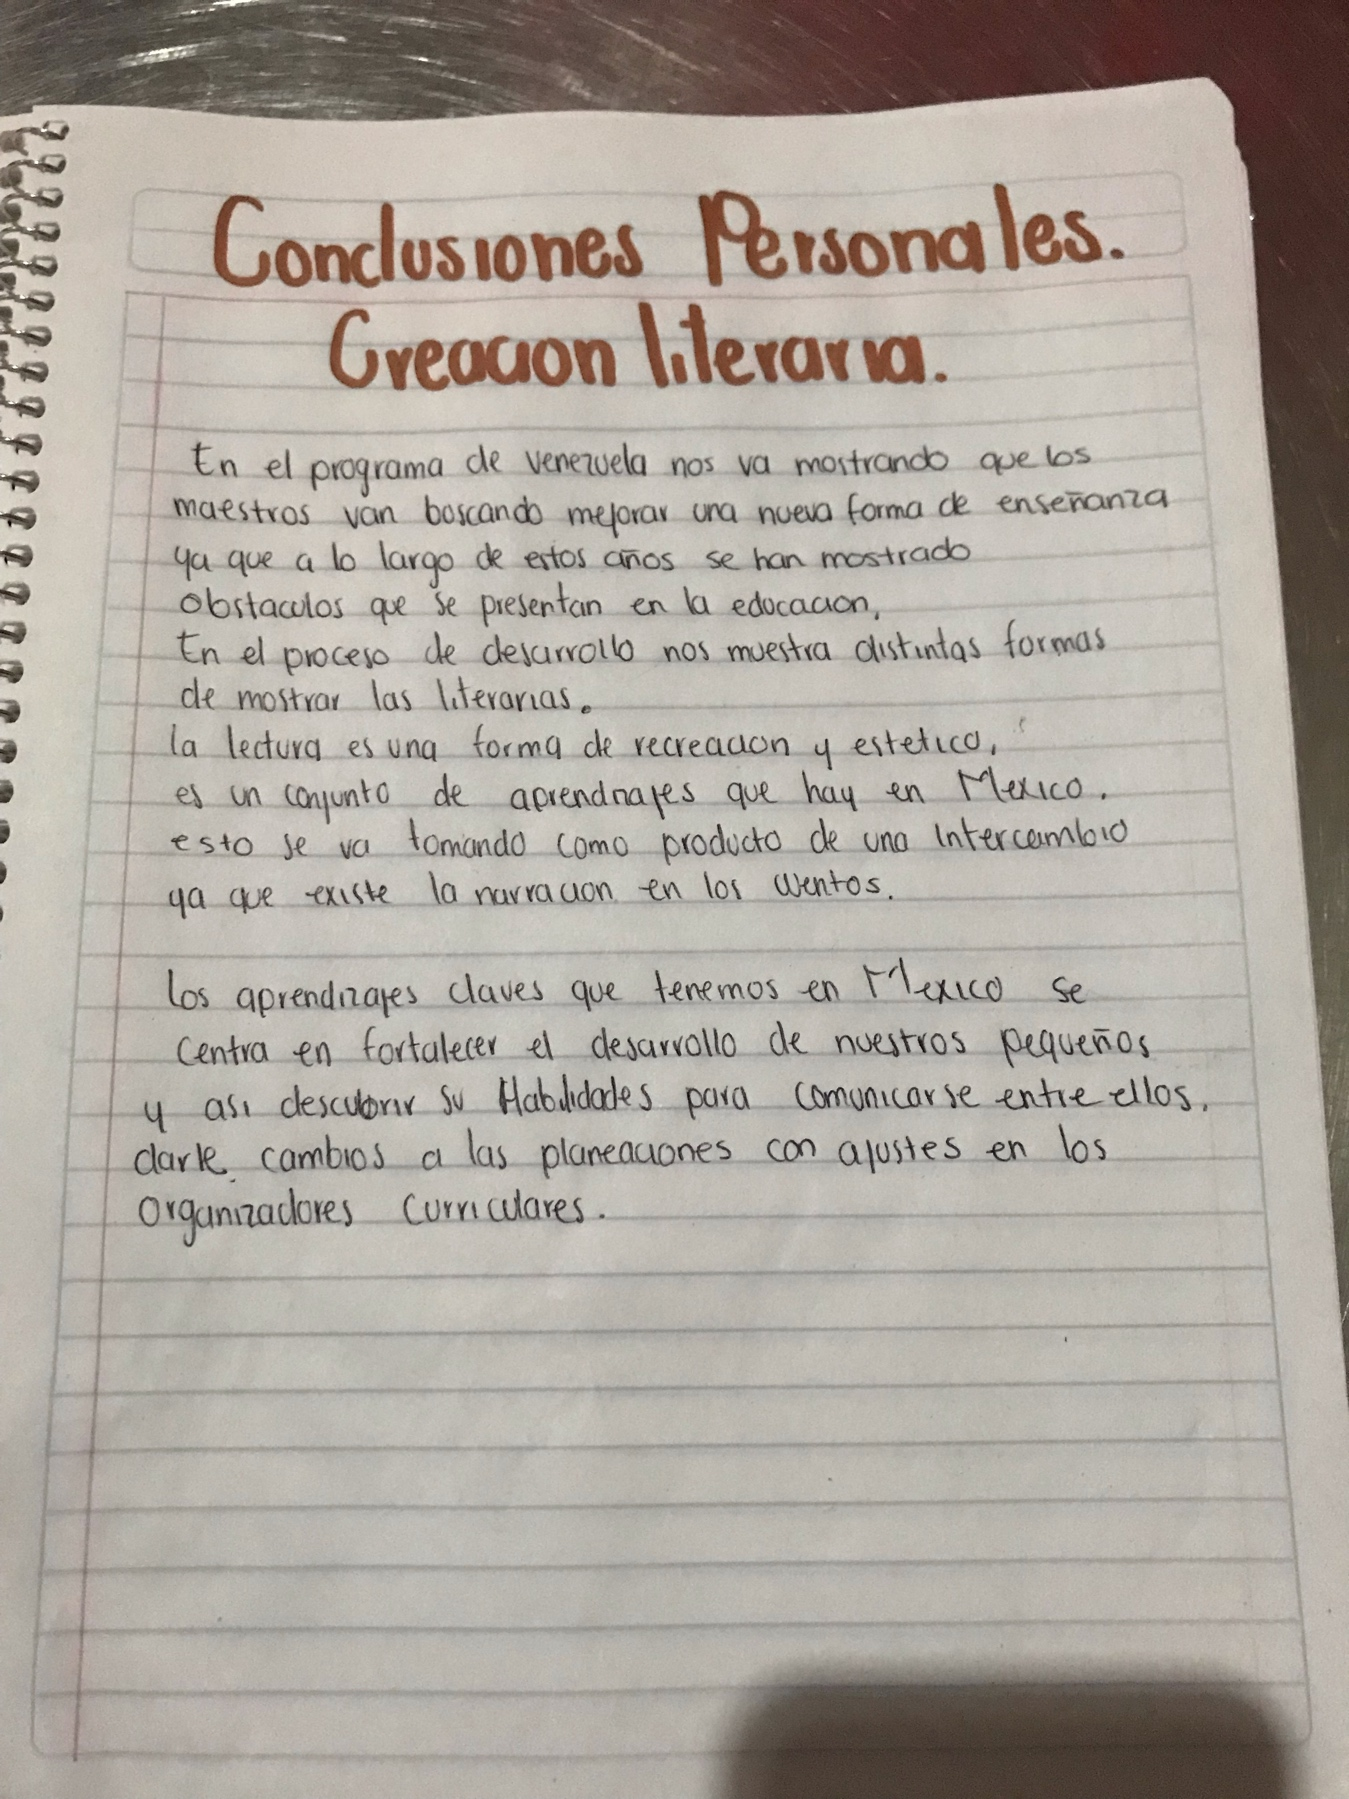 Conclusiones Personales.
Creacion literaria.
En el programa de venezuela nos va mostrando que los
maestros van boscando mejorar una nueva forma de enseñanza
ya que a lo largo de estos años se han mostrado
obstaculos que se presentan en la educacion,
En el proceso de desarrollo nos muestra distintas formas
de mostrar las literarias.
la lectura es una forma de recreacion y estetico,
es un conjunto de aprendizajes que hay en Mexico.
esto se va tomando como producto de una intercambio
ya que existe la narracion en los cuentos.
los aprendizajes claves que tenemos en Mexico se
centra en fortalecer el desarrollo de nuestros pequeños
y asi descubrir su Habilidades para comunicarse entre ellos.
darle cambios a las planeaciones con ajustes en los
organizadores curriculares.